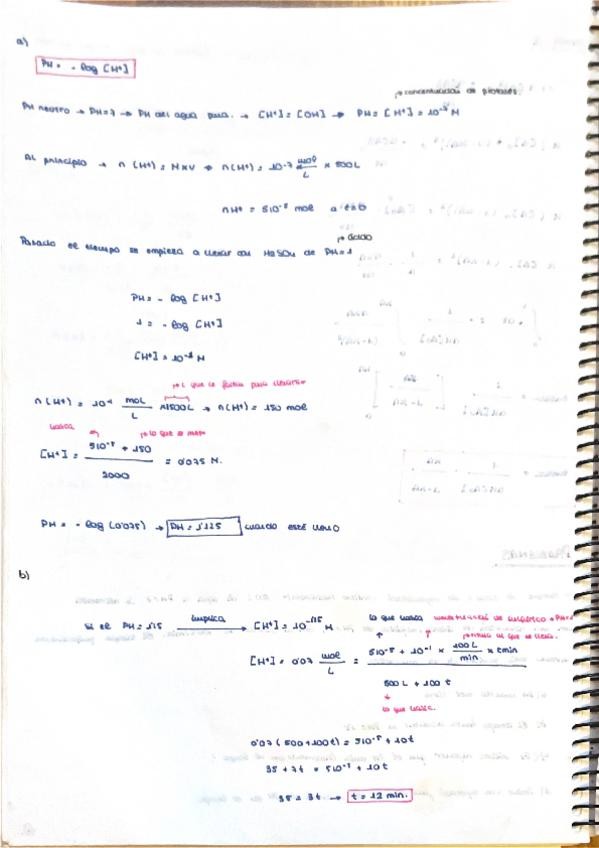 a)
PH = - log [H⁺]
↱ concentración de protones
PH neutro → PH=7 → PH del agua pura. → [H⁺] = [OH] → PH = [H⁺] = 10⁻⁷ M
Al principio → n (H⁺) = M×V → n(H⁺) = 10⁻⁷ mol/L × 500L
nH⁺ = 510⁻⁵ mol a t=0
↱ ácido
Pasado el tiempo se empieza a llenar con H₂SO₄ de PH=1
PH = - log [H⁺]
1 = - log [H⁺]
[H⁺] = 10⁻¹ M
↱ L que le faltan para llenarse
n(H⁺) = 10⁻¹ mol/L × 1500L → n(H⁺) = 150 mol
había ↱ lo que se mete
[H⁺] = 510⁻⁵ + 150 / 2000 = 0'075 M.
PH = - log (0'075) → PH = 1'125 cuando esté lleno
b)
Si el PH = 1'15 implica → [H⁺] = 10⁻¹'¹⁵ M
lo que había
[H⁺] = 0'07 mol/L = 510⁻⁵ + 10⁻¹ × 100L/min × t min / 500L + 100t
lo que había.
0'07 (500+100t) = 510⁻⁵ + 10t
35 + 7t = 510⁻⁵ + 10t
35 = 3t → t = 12 min.